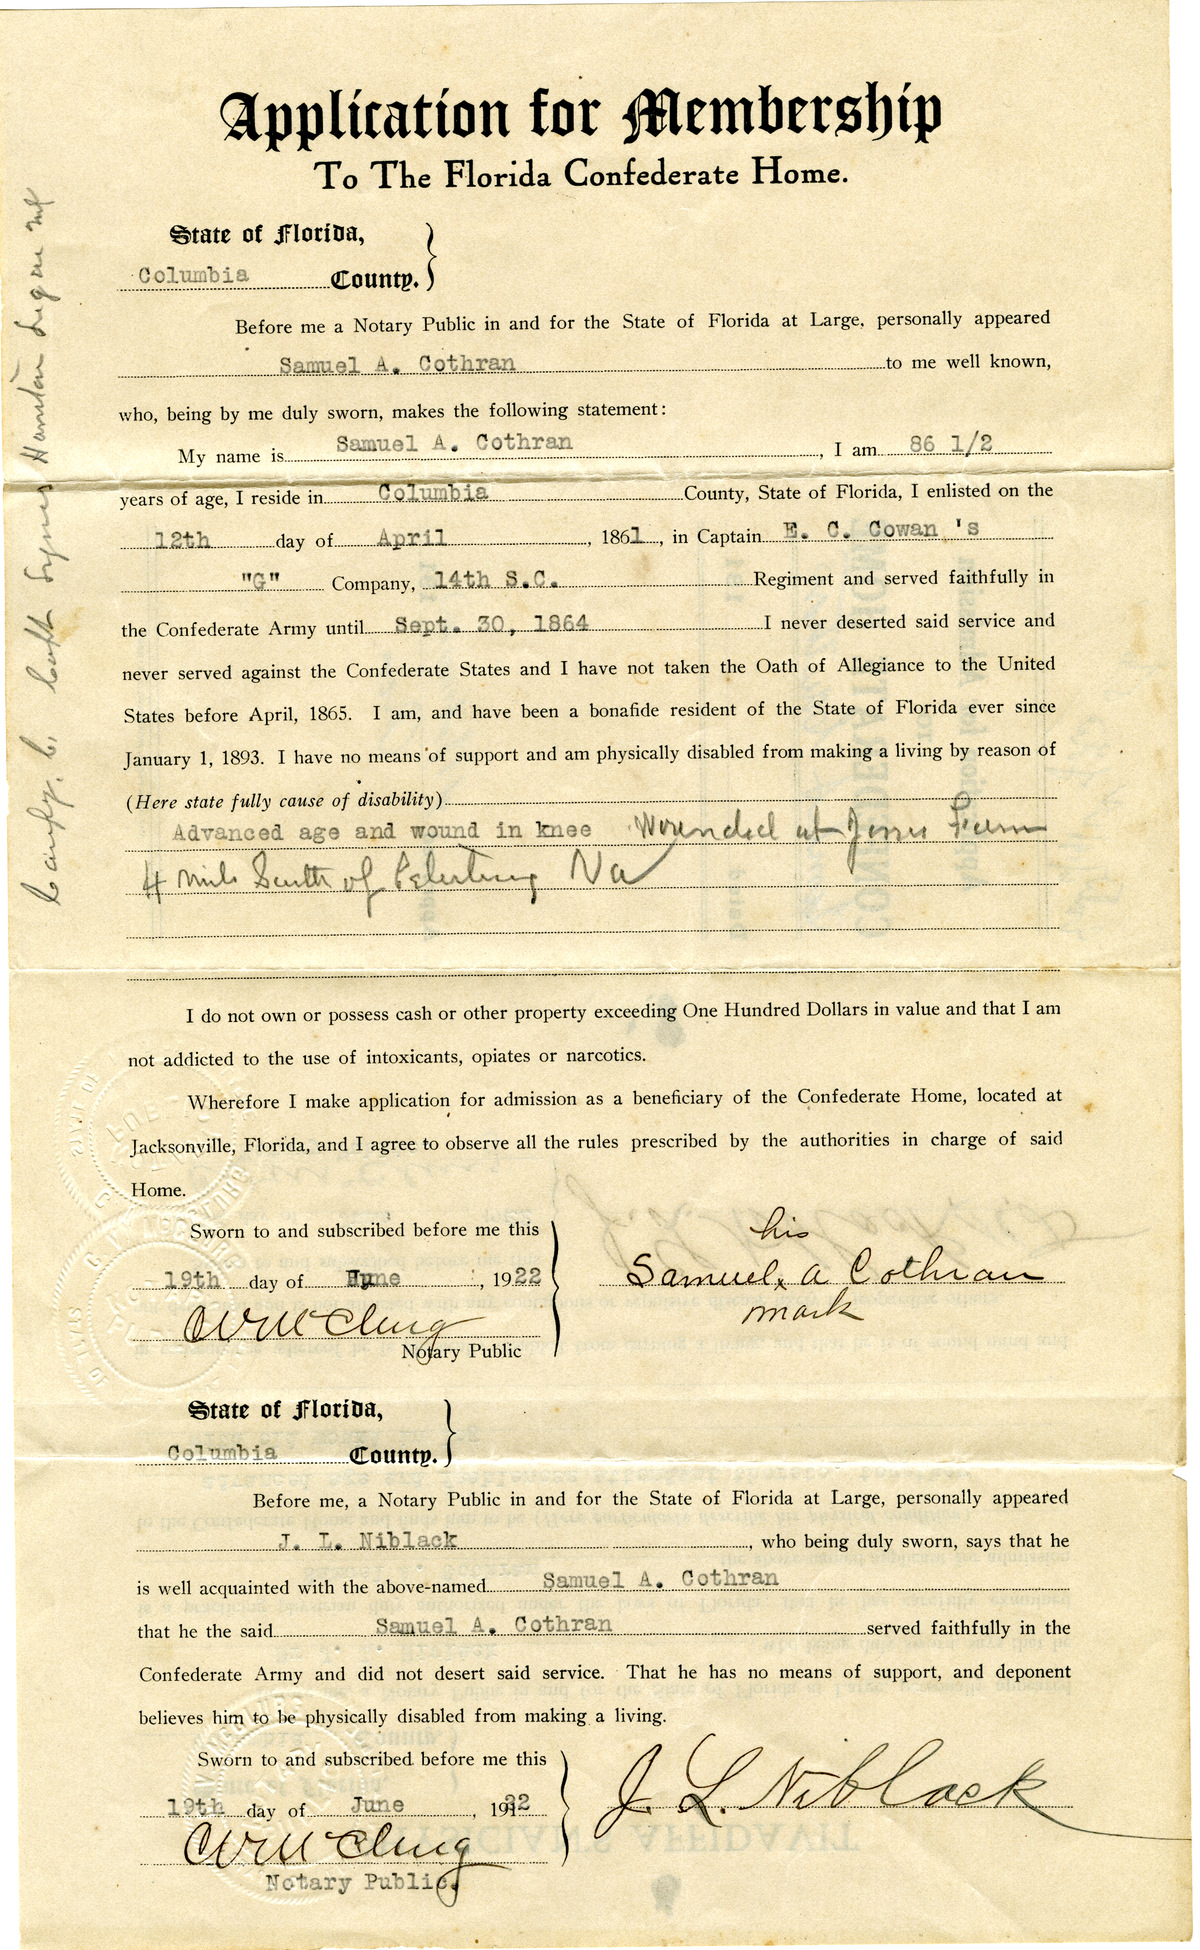 Application for Membership
To The Florida Confederate Home.
State of Florida,
Columbia County.
Before me a Notary Public in and for the State of Florida at Large, personally appeared
Samuel A. Cothran to me well known,
who, being by me duly sworn, makes the following statement:
My name is Samuel A. Cothran, I am 86 1/2
years of age, I reside in Columbia County, State of Florida, I enlisted on the
12th day of April, 1861, in Captain E. C. Cowan 's
"G" Company, 14th S.C. Regiment and served faithfully in
the Confederate Army until Sept. 30, 1864 I never deserted said service and
never served against the Confederate States and I have not taken the Oath of Allegiance to the United
States before April, 1865. I am, and have been a bonafide resident of the State of Florida ever since
January 1, 1893. I have no means of support and am physically disabled from making a living by reason of
(Here state fully cause of disability)
Advanced age and wound in knee Wounded at Jones Farm
4 mile South of Va
I do not own or possess cash or other property exceeding One Hundred Dollars in value and that I am
not addicted to the use of intoxicants, opiates or narcotics.
Wherefore I make application for admission as a beneficiary of the Confederate Home, located at
Jacksonville, Florida, and I agree to observe all the rules prescribed by the authorities in charge of said
Home.
Sworn to and subscribed before me this
19th day of June, 1922
Notary Public
his
Samuel x A Cothran
mark
State of Florida,
Columbia County.
Before me, a Notary Public in and for the State of Florida at Large, personally appeared
J. L. Niblack, who being duly sworn, says that he
is well acquainted with the above-named Samuel A. Cothran
that he the said Samuel A. Cothran served faithfully in the
Confederate Army and did not desert said service. That he has no means of support, and deponent
believes him to be physically disabled from making a living.
Sworn to and subscribed before me this
19th day of June, 1922
Notary Public.
J. L. Niblack